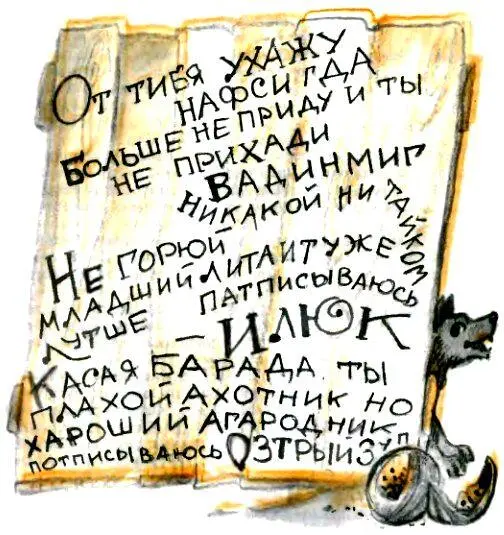 От тибя ухажу
нафси гда
Больше не приду и ты
не прихади
Вадинмиг
никакой ни тайком
Не горюй
младший литаит уже
лутше патписываюсь
– Илюк
Касая барада ты
плахой ахотник но
хароший агародник
потписываюсь Озтрый зуп